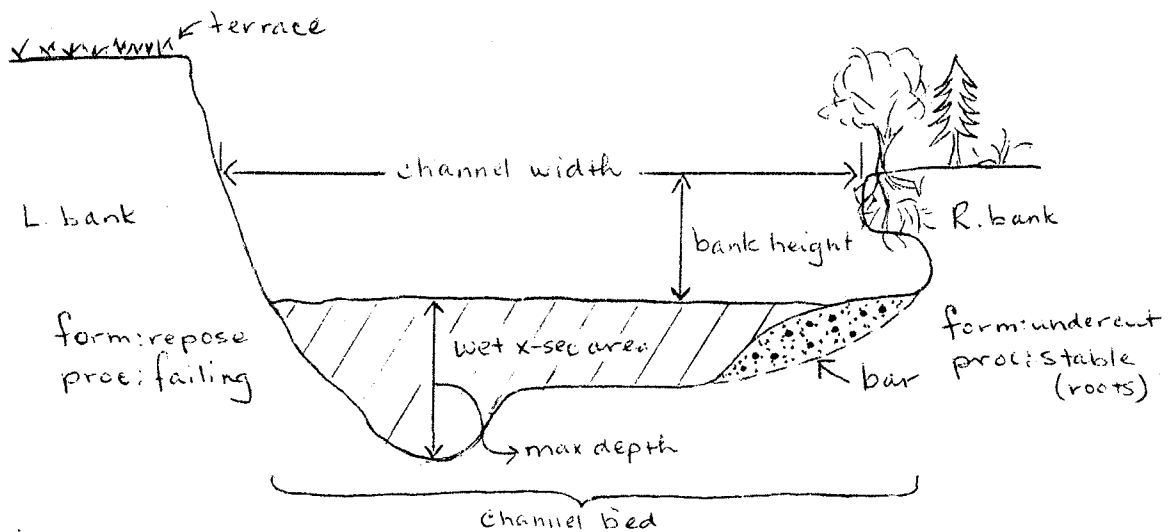 terrace
channel width
L. bank
bank height
R. bank
form: repose
proc: failing
wet x-sec area
form: undercut
proc: stable
(roots)
bar
max depth
channel bed